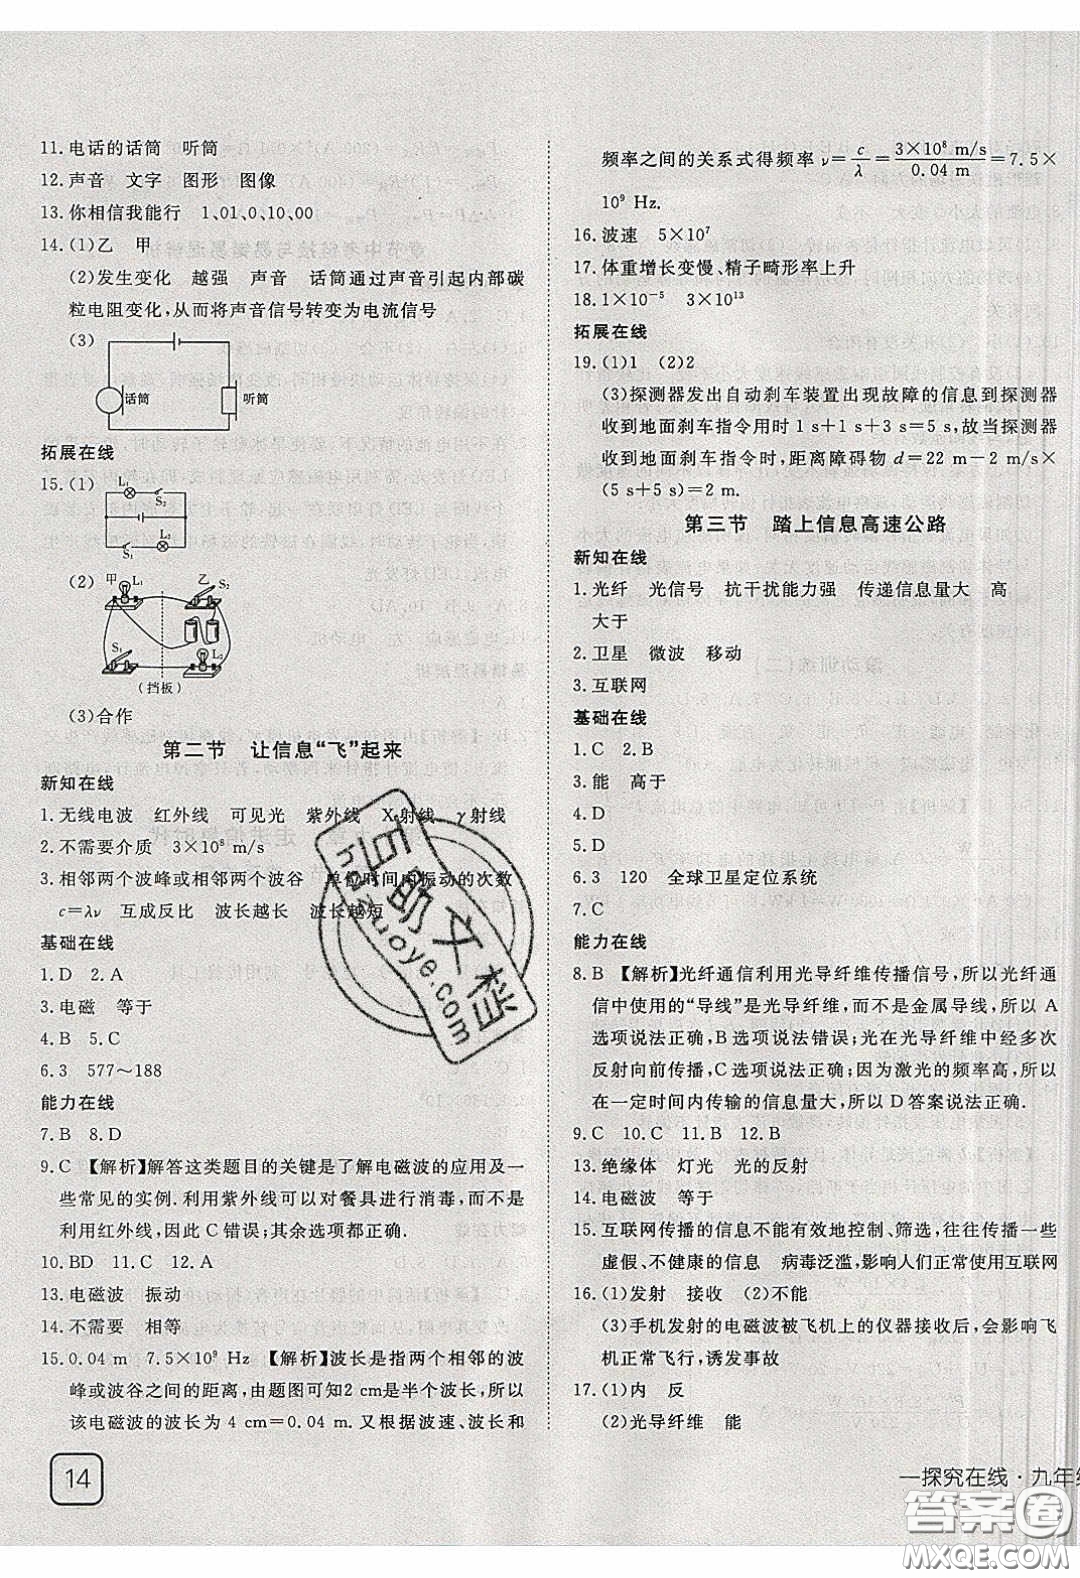 11.电话的话筒 听筒
12.声音 文字 图形 图像
13.你相信我能行 1、01、0、10、00
14.(1)乙 甲
(2)发生变化 越强 声音 话筒通过声音引起内部碳
粒电阻变化,从而将声音信号转变为电流信号
(3)
话筒 听筒
拓展在线
15.(1)
L₁ S₂
S₁ L₂
(2)
甲 L₁ 乙 S₂
S₁ L₂
(挡板)
(3)合作
第二节 让信息“飞”起来
新知在线
1.无线电波 红外线 可见光 紫外线 X射线 γ射线
2.不需要介质 3×10⁸ m/s
3.相邻两个波峰或相邻两个波谷 单位时间内振动的次数
c=λν 互成反比 波长越长 波长越短
基础在线
1.D 2.A
3.电磁 等于
4.B 5.C
6.3 577～188
能力在线
7.B 8.D
9.C 【解析】解答这类题目的关键是了解电磁波的应用及一
些常见的实例.利用紫外线可以对餐具进行消毒,而不是
利用红外线,因此C错误;其余选项都正确.
10.BD 11.C 12.A
13.电磁波 振动
14.不需要 相等
15.0.04 m 7.5×10⁹ Hz 【解析】波长是指两个相邻的波
峰或波谷之间的距离,由题图可知2 cm是半个波长,所以
该电磁波的波长为4 cm=0.04 m.又根据波速、波长和
14
频率之间的关系式得频率ν=c/λ=3×10⁸ m/s/0.04 m=7.5×
10⁹ Hz.
16.波速 5×10⁷
17.体重增长变慢、精子畸形率上升
18.1×10⁻⁵ 3×10¹³
拓展在线
19.(1)1 (2)2
(3)探测器发出自动刹车装置出现故障的信息到探测器
收到地面刹车指令用时1 s+1 s+3 s=5 s,故当探测器
收到地面刹车指令时,距离障碍物d=22 m-2 m/s×
(5 s+5 s)=2 m.
第三节 踏上信息高速公路
新知在线
1.光纤 光信号 抗干扰能力强 传递信息量大 高
大于
2.卫星 微波 移动
3.互联网
基础在线
1.C 2.B
3.能 高于
4.D
5.D
6.3 120 全球卫星定位系统
7.C
能力在线
8.B 【解析】光纤通信利用光导纤维传播信号,所以光纤通
信中使用的“导线”是光导纤维,而不是金属导线,所以A
选项说法正确,B选项说法错误;光在光导纤维中经多次
反射向前传播,C选项说法正确;因为激光的频率高,所
以在一定时间内传输的信息量大,所以D答案说法正确.
9.C 10.C 11.B 12.B
13.绝缘体 灯光 光的反射
14.电磁波 等于
15.互联网传播的信息不能有效地控制、筛选,往往传播一些
虚假、不健康的信息 病毒泛滥,影响人们正常使用互联网
16.(1)发射 接收 (2)不能
(3)手机发射的电磁波被飞机上的仪器接收后,会影响飞
机正常飞行,诱发事故
17.(1)内 反
(2)光导纤维 能
一探究在线·九年级
作助文档
hezuoye.com
答案圈
MXQE.COM